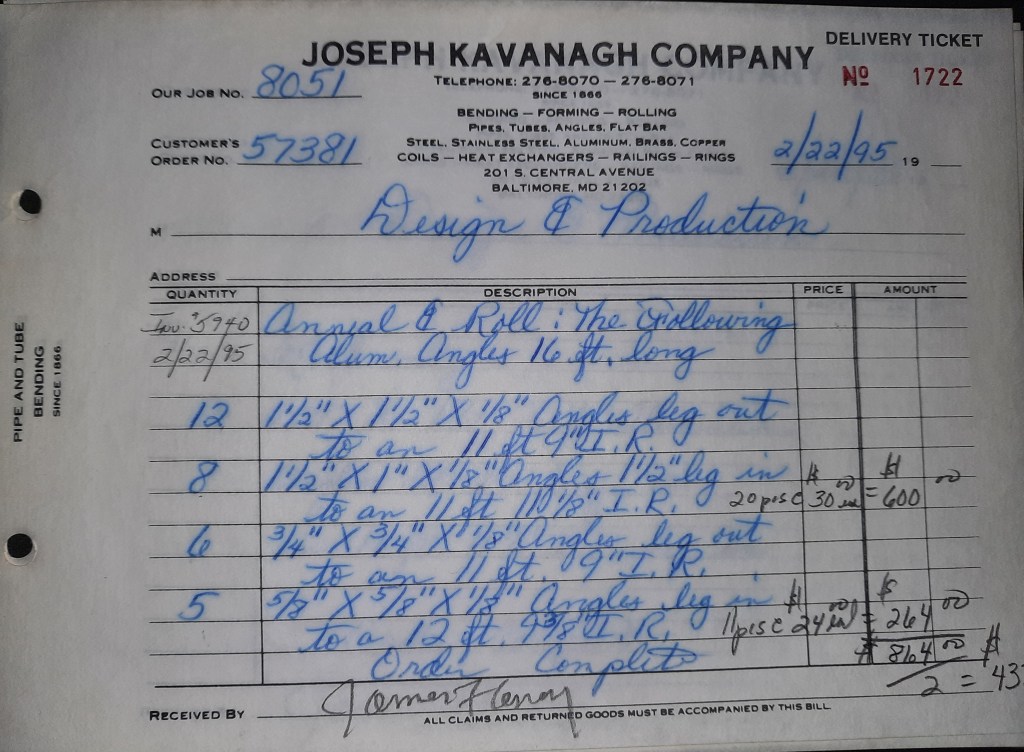 DELIVERY TICKET
JOSEPH KAVANAGH COMPANY
Nº 1722
TELEPHONE: 276-8070 — 276-8071
SINCE 1866
OUR JOB NO. 8051
BENDING — FORMING — ROLLING
PIPES, TUBES, ANGLES, FLAT BAR
CUSTOMER'S
ORDER NO. 57381
STEEL, STAINLESS STEEL, ALUMINUM, BRASS, COPPER
COILS — HEAT EXCHANGERS — RAILINGS — RINGS
2/22/95 19
201 S. CENTRAL AVENUE
BALTIMORE, MD 21202
M Design & Production
ADDRESS
QUANTITY DESCRIPTION PRICE AMOUNT
Inv. #5940 Anneal & Roll: The Following
2/22/95 Alum. Angles 16 ft. long
12 1 1/2" X 1 1/2" X 1/8" Angles leg out
to an 11 ft 9" I.R.
8 1 1/2" X 1" X 1/8" Angles 1 1/2" leg in
to an 11 ft 11 1/8" I.R. 20 pcs @ $30 00 ea = $600 00
6 3/4" X 3/4" X 1/8" Angles leg out
to an 11 ft. 9" I.R.
5 5/8" X 5/8" X 1/8" Angles leg in
to a 12 ft. 9 3/8" I.R. 11 pcs @ $24 00 ea = $264 00
Order Complete $864 00
2 = $43
RECEIVED BY James
ALL CLAIMS AND RETURNED GOODS MUST BE ACCOMPANIED BY THIS BILL
PIPE AND TUBE
BENDING
SINCE 1866